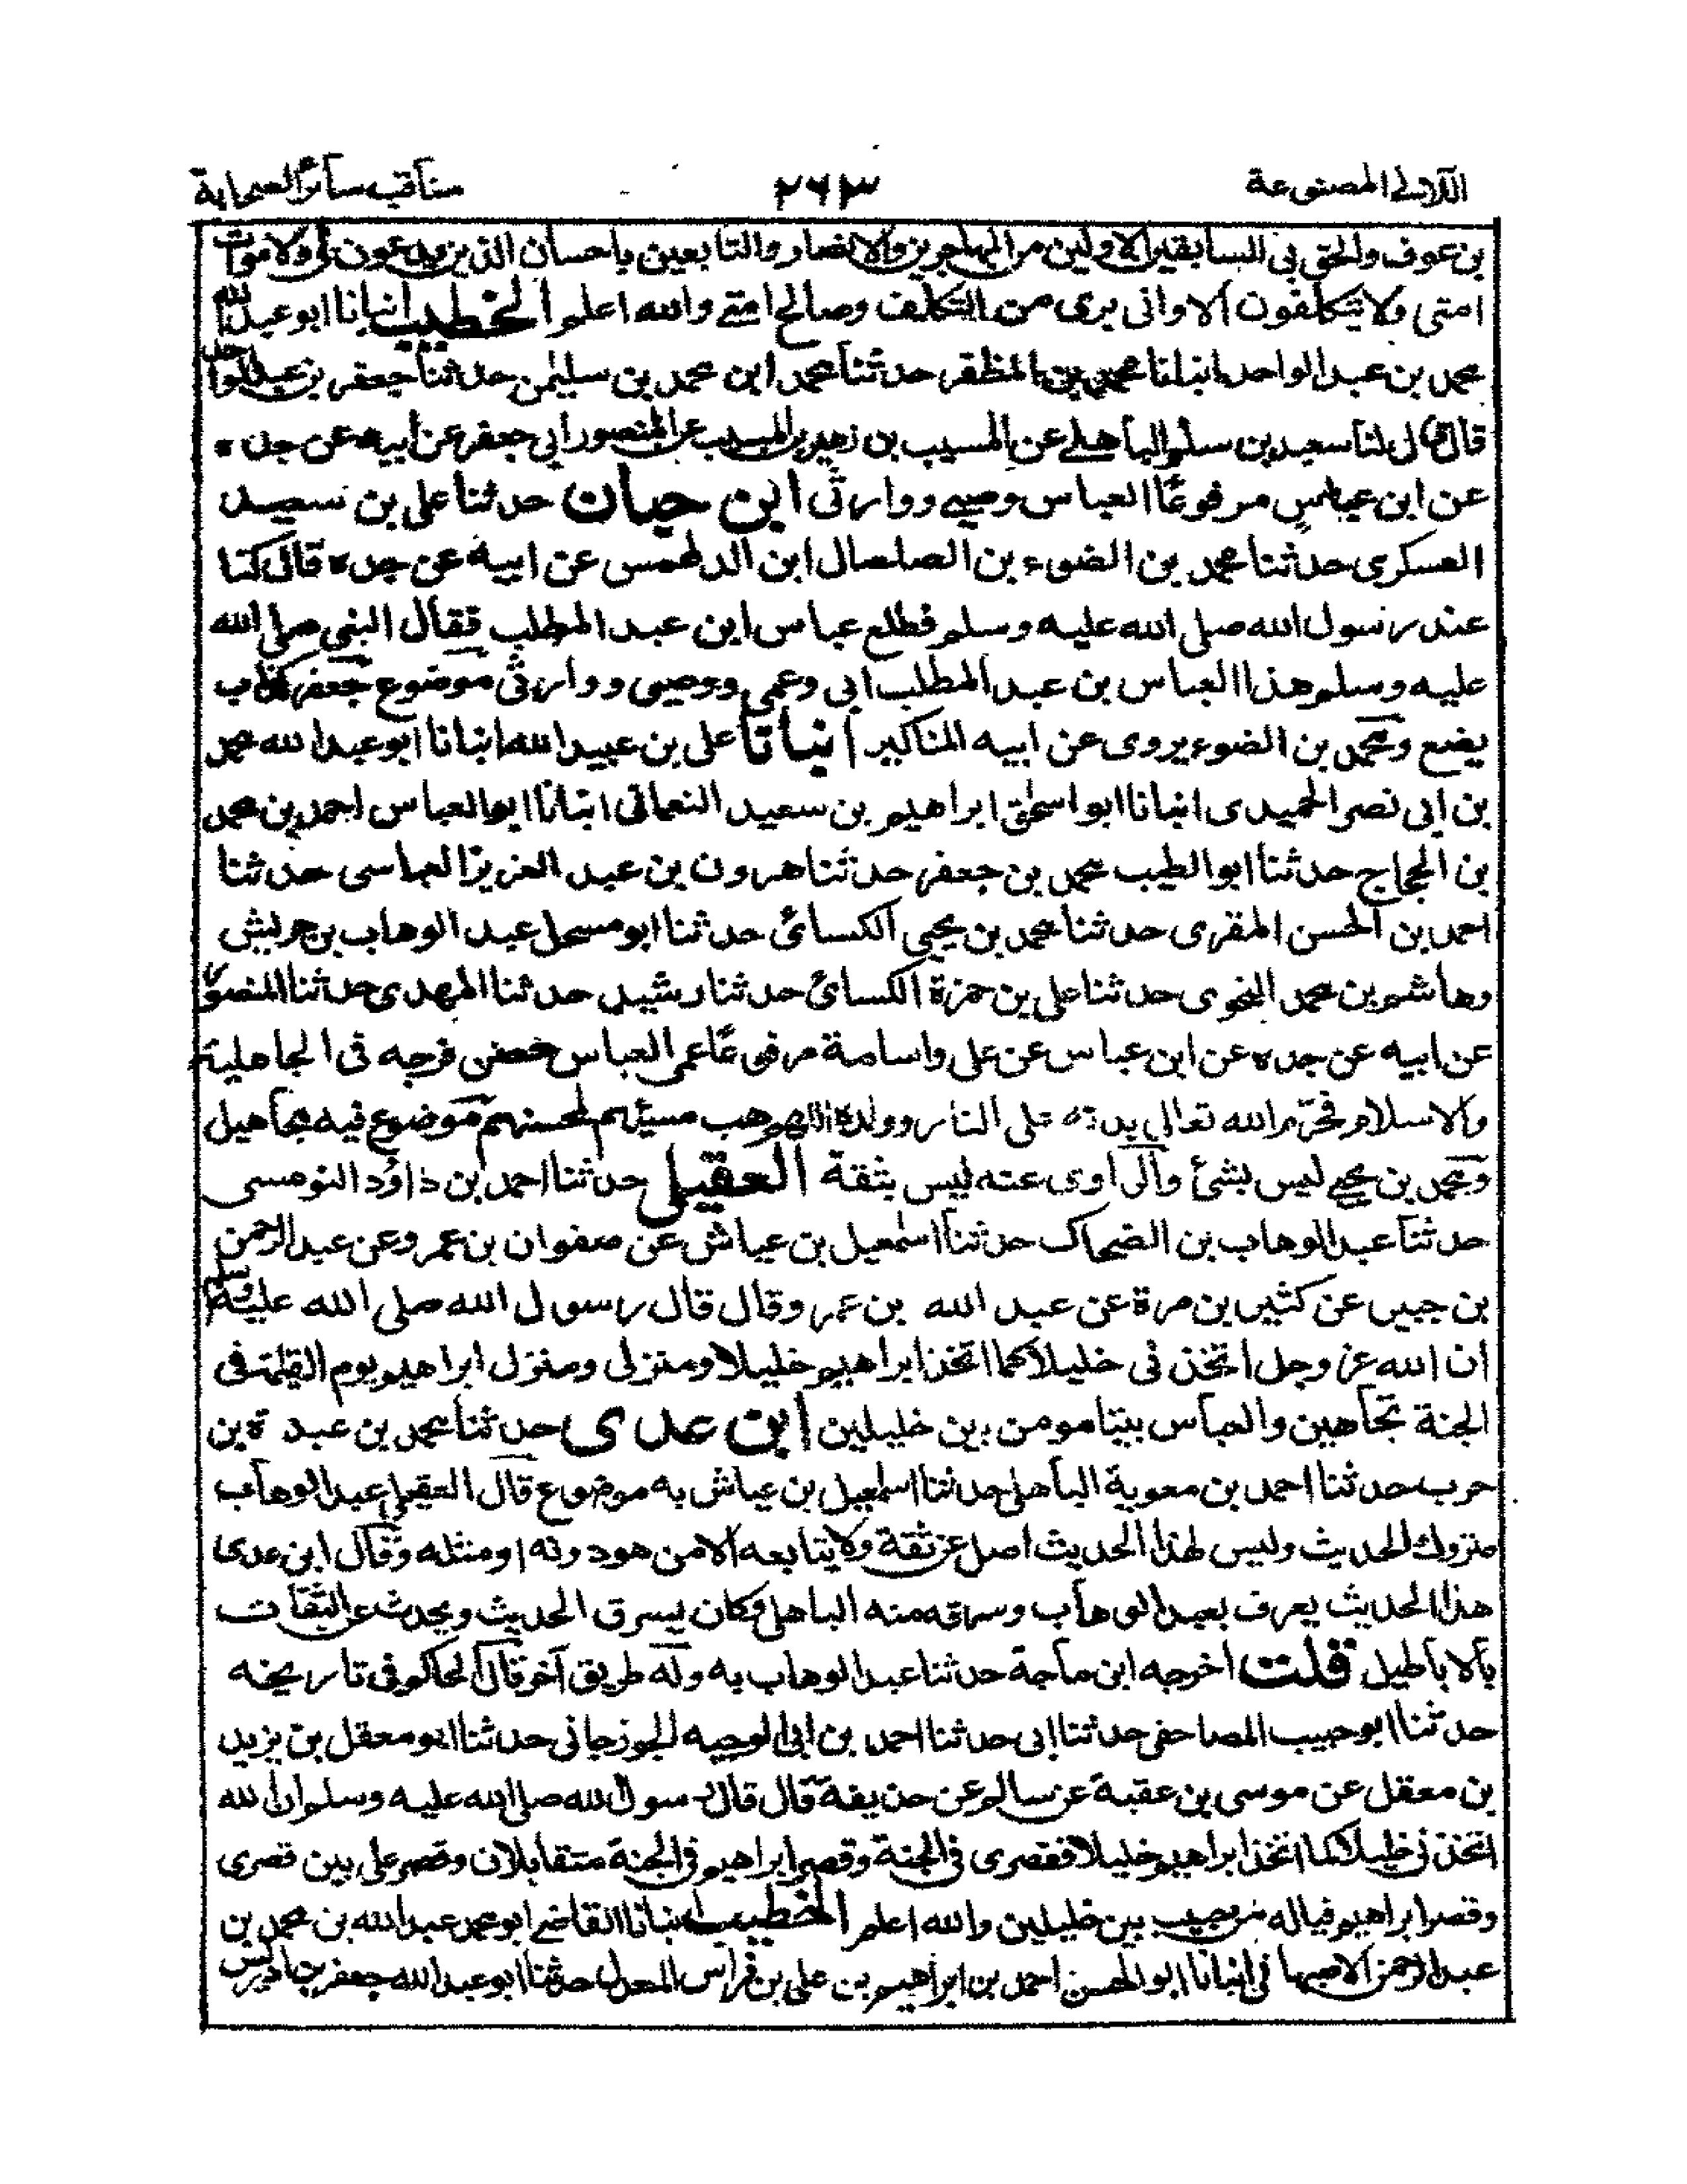 اللآلى المصنوعة ٢٦٣ مناقب سائر الصحابة
بن عوف والحق بى السابقين الاولين من المهاجرين والانصار والتابعين باحسان الذين يدعون لى ولاموات
امتى ولا يتكلفون الا وانى برى من التكلف وصالح امتى والله اعلم الخطيب انبانا ابو عبد الله
محمد بن عبد الواحد انبانا محمد بن المظفر حدثنا محمد ابن محمد بن سليمٰن حدثنا جعفر بن عبد الواحد
قال قال لنا سعيد بن سلم الباهلے عن المسيب بن زهير بن المسيب عن المنصور ابى جعفر عن ابيه عن جده
عن ابن عباس مرفوعًا العباس وصيے ووارثى ابن حبان حدثنا على بن سعيد
العسكرى حدثنا محمد بن الضوء بن الصلصال ابن الدلهمس عن ابيه عن جده قال كنا
عند رسول الله صلى الله عليه وسلم فطلع عباس ابن عبد المطلب فقال النبى صلى الله
عليه وسلم هذا العباس بن عبد المطلب ابى وعمى ووصيى ووارثى موضوع جعفر كذاب
يضع ومحمد بن الضوء يروى عن ابيه المناكير انبانا على بن عبيد الله انبانا ابو عبد الله محمد
بن ابى نصر الحميدى انبانا ابو اسحٰق ابراهيم بن سعيد النعمانى انبانا ابو العباس احمد بن محمد
بن الحجاج حدثنا ابو الطيب محمد بن جعفر حدثنا هرون بن عبد العزيز العباسى حدثنا
احمد بن الحسن المقرى حدثنا محمد بن يحيى الكسائى حدثنا ابو مسحل عبد الوهاب بن حريش
وهاشم بن محمد النحوى حدثنا على بن حمزة الكسائى حدثنا رشيد حدثنا المهدى حدثنا المنصور
عن ابيه عن جده عن ابن عباس عن على واسامة مرفوعًا عمى العباس حصن فرجه فى الجاهلية
والاسلام فحرم الله تعالى بدنه على النار وولده اللهم هب مسيئهم لمحسنهم موضوع فيه مجاهيل
ومحمد بن يحيے ليس بشئ والراوى عنه ليس بثقة العقيلى حدثنا احمد بن داؤد النومسى
حدثنا عبد الوهاب بن الضحاك حدثنا اسمٰعيل بن عياش عن صفوان بن عمرو عن عبد الرحمن
بن جبير عن كثير بن مرة عن عبد الله بن عمر وقال قال رسول الله صلى الله عليه وسلم
ان الله عز وجل اتخذ نى خليلا كما اتخذ ابراهيم خليلا ومنزلى ومنزل ابراهيم يوم القيٰمة فى
الجنة تجاهين والعباس بيننا مومن بين خليلين ابن عدى حدثنا محمد بن عبدة بن
حرب حدثنا احمد بن معوية الباهلى حدثنا اسمٰعيل بن عياش به موضوع قال العقيلى عبد الوهاب
متروك الحديث وليس لهذا الحديث اصل عن ثقة ولا يتابعه الا من هو دونه او مثله وقال ابن عدى
هذا الحديث يعرف بعبد الوهاب وسرقه منه الباهلى وكان يسرق الحديث ويحدث عن الثقات
بالاباطيل قلت اخرجه ابن ماجة حدثنا عبد الوهاب به وله طريق آخر قال الحاكم فى تاريخه
حدثنا ابو حبيب المصاحفى حدثنا ابى حدثنا احمد بن ابى الوجيه الجوزجانى حدثنا ابو معقل بن يزيد
بن معقل عن موسى بن عقبة عن سالم عن حذيفة قال قال رسول الله صلى الله عليه وسلم ان الله
اتخذنى خليلا كما اتخذ ابراهيم خليلا فقصرى فى الجنة وقصر ابراهيم فى الجنة متقابلان وقصر على بين قصرى
وقصر ابراهيم فياله من حبيب بين خليلين والله اعلم الخطيب انبانا القاضے ابو محمد عبد الله بن محمد بن
عبد الرحمن الاصبهانى انبانا ابو الحسن احمد بن ابراهيم بن على بن فراس المعدل حدثنا ابو عبد الله جعفر بن ادريس